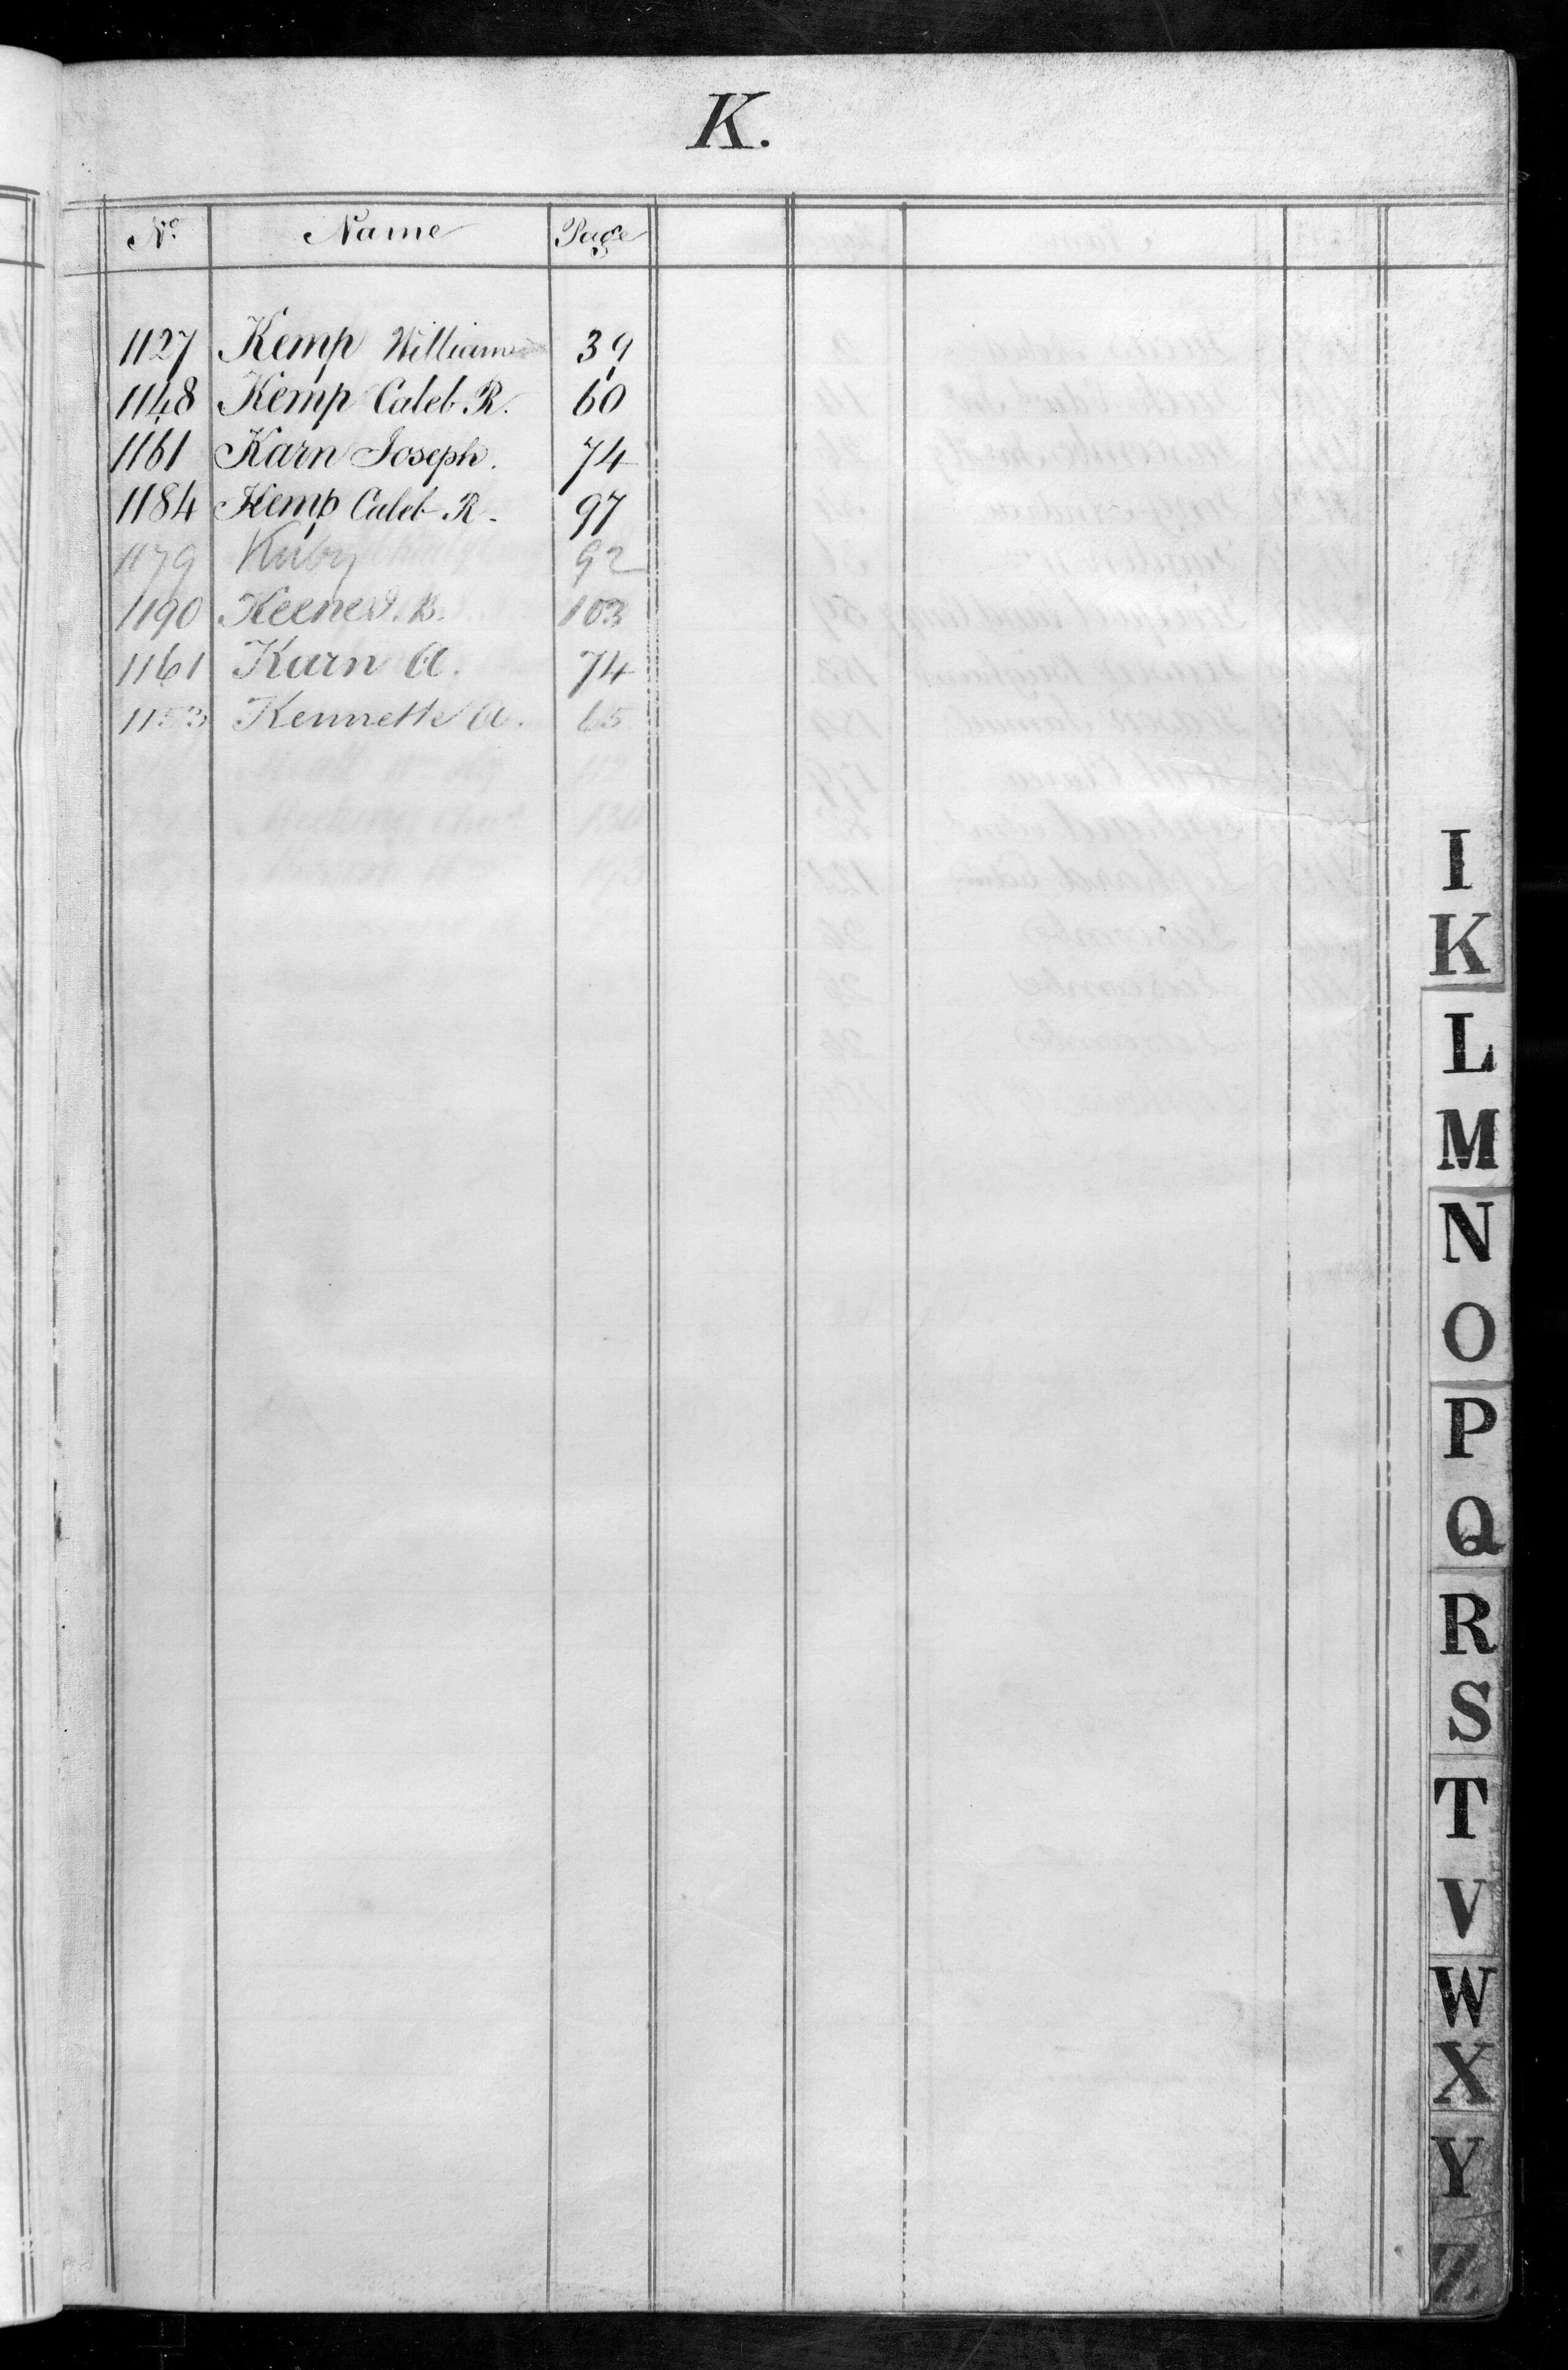 K.
No. Name Page
1127 Kemp William 39
1148 Kemp Caleb R. 60
1161 Karn Joseph. 74
1184 Kemp Caleb R. 97
1179 92
1190 Keene J. B. 103
1161 Karn A. 74
1153 Kennett A. 65
I
K
L
M
N
O
P
Q
R
S
T
V
W
X
Y
Z